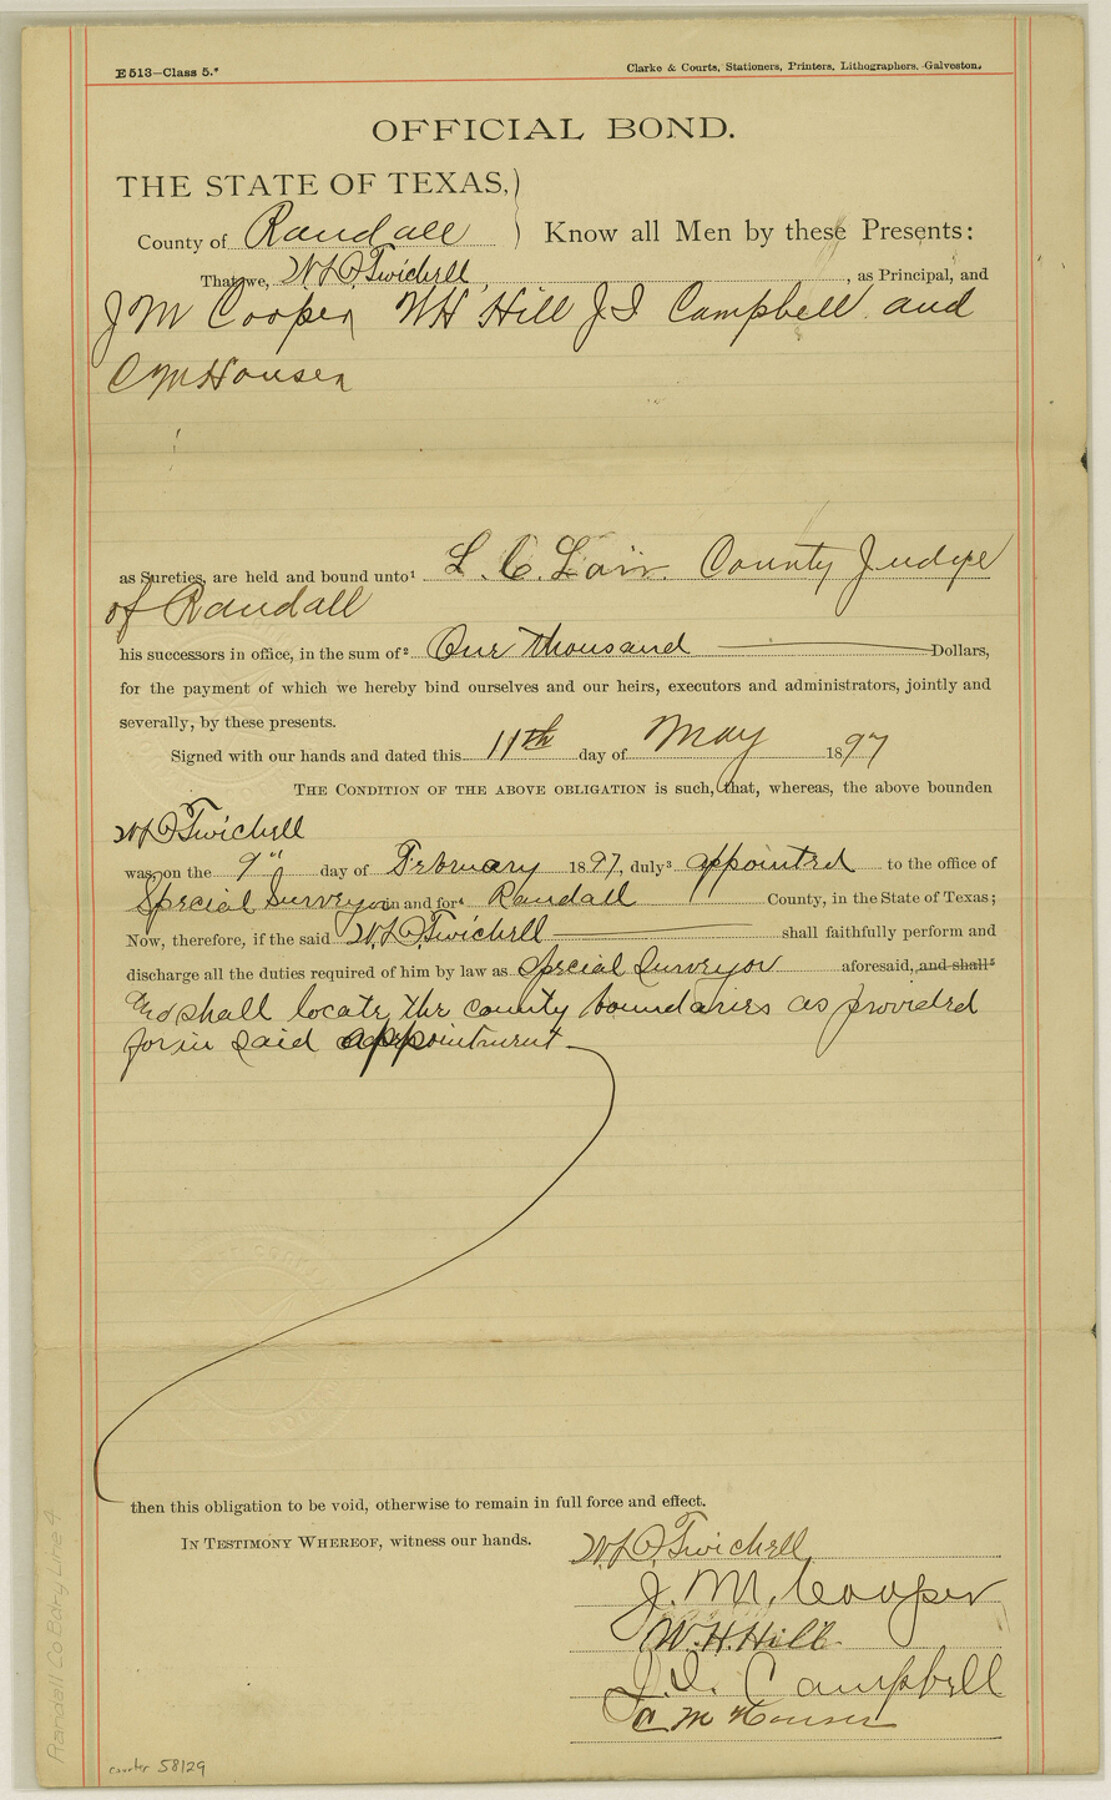 E 513—Class 5.*
Clarke & Courts, Stationers, Printers, Lithographers, Galveston.
OFFICIAL BOND.
THE STATE OF TEXAS,
County of Randall Know all Men by these Presents:
That we, W.D. Twichell, as Principal, and
J M Cooper W H Hill J I Campbell and
C M Houser
as Sureties, are held and bound unto¹ L. C. Lair. County Judge
of Randall
his successors in office, in the sum of² One thousand Dollars,
for the payment of which we hereby bind ourselves and our heirs, executors and administrators, jointly and
severally, by these presents.
Signed with our hands and dated this 11th day of May 1897
THE CONDITION OF THE ABOVE OBLIGATION is such, that, whereas, the above bounden
W.D. Twichell
was, on the 9" day of February 1897, duly³ appointed to the office of
Special Surveyor in and for⁴ Randall County, in the State of Texas;
Now, therefore, if the said W.D. Twichell shall faithfully perform and
discharge all the duties required of him by law as Special Surveyor aforesaid, and shall⁵
And shall locate the county boundaries as provided
for in said appointment
then this obligation to be void, otherwise to remain in full force and effect.
IN TESTIMONY WHEREOF, witness our hands.
W.D. Twichell
J. M. Cooper
W. H. Hill
J. I. Campbell
C M Houser
Randall Co Bdry Line 4
counter 58129